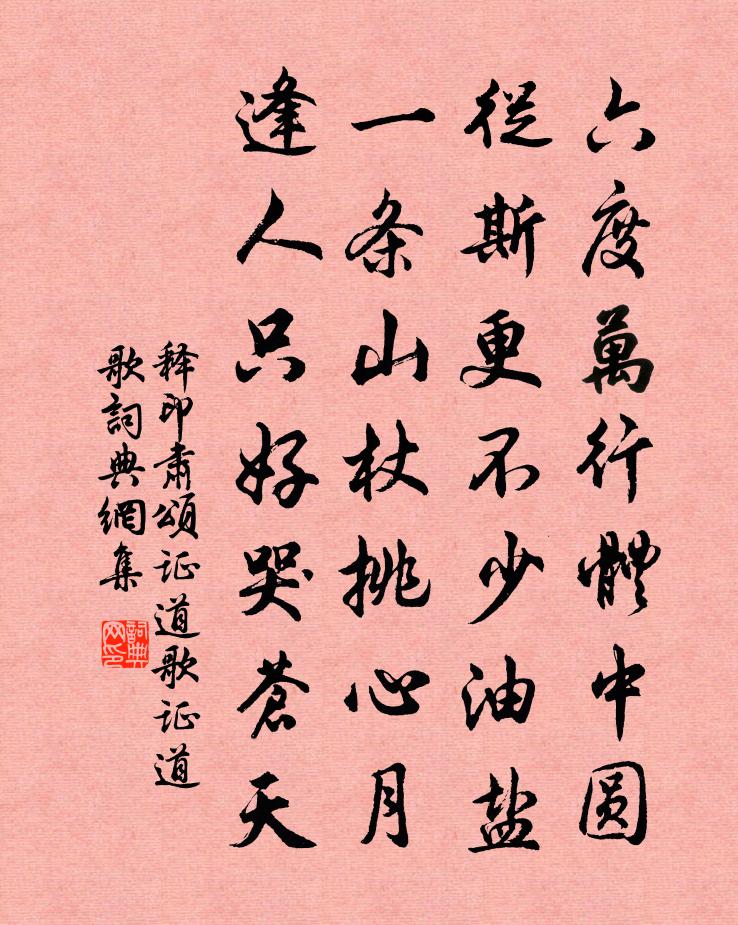 六度萬行體中圆
從斯更不少油盐
一条山杖挑心月
逢人只好哭蒼天
释印肃頌证道歌证道
歌詞典網集
詞典
网印